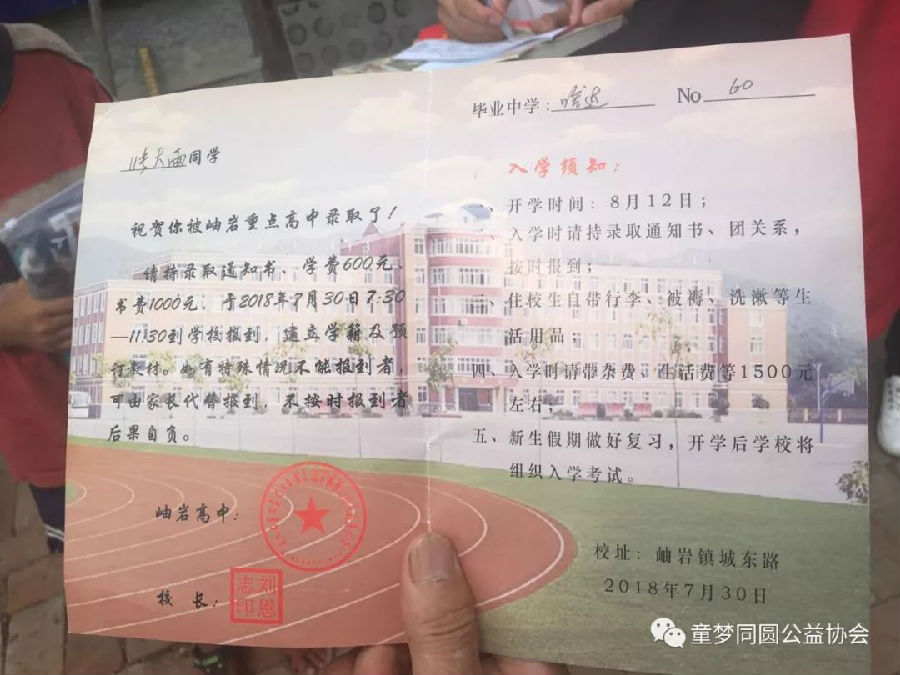 同学
祝贺你被岫岩重点高中录取了！
请持录取通知书、学费600元、
书费1000元，于2018年7月30日7:30
—11:30到学校报到，建立学籍及预
订教材。如有特殊情况不能报到者，
可由家长代替报到，不按时报到者
后果自负。
岫岩高中：
校 长：
刘恩志印
毕业中学： No 60
入学须知：
一、开学时间：8月12日；
二、入学时请持录取通知书、团关系，
按时报到；
三、住校生自带行李、被褥、洗漱等生
活用品；
四、入学时请带杂费、生活费等1500元
左右；
五、新生假期做好复习，开学后学校将
组织入学考试。
校址：岫岩镇城东路
2018年7月30日
童梦同圆公益协会